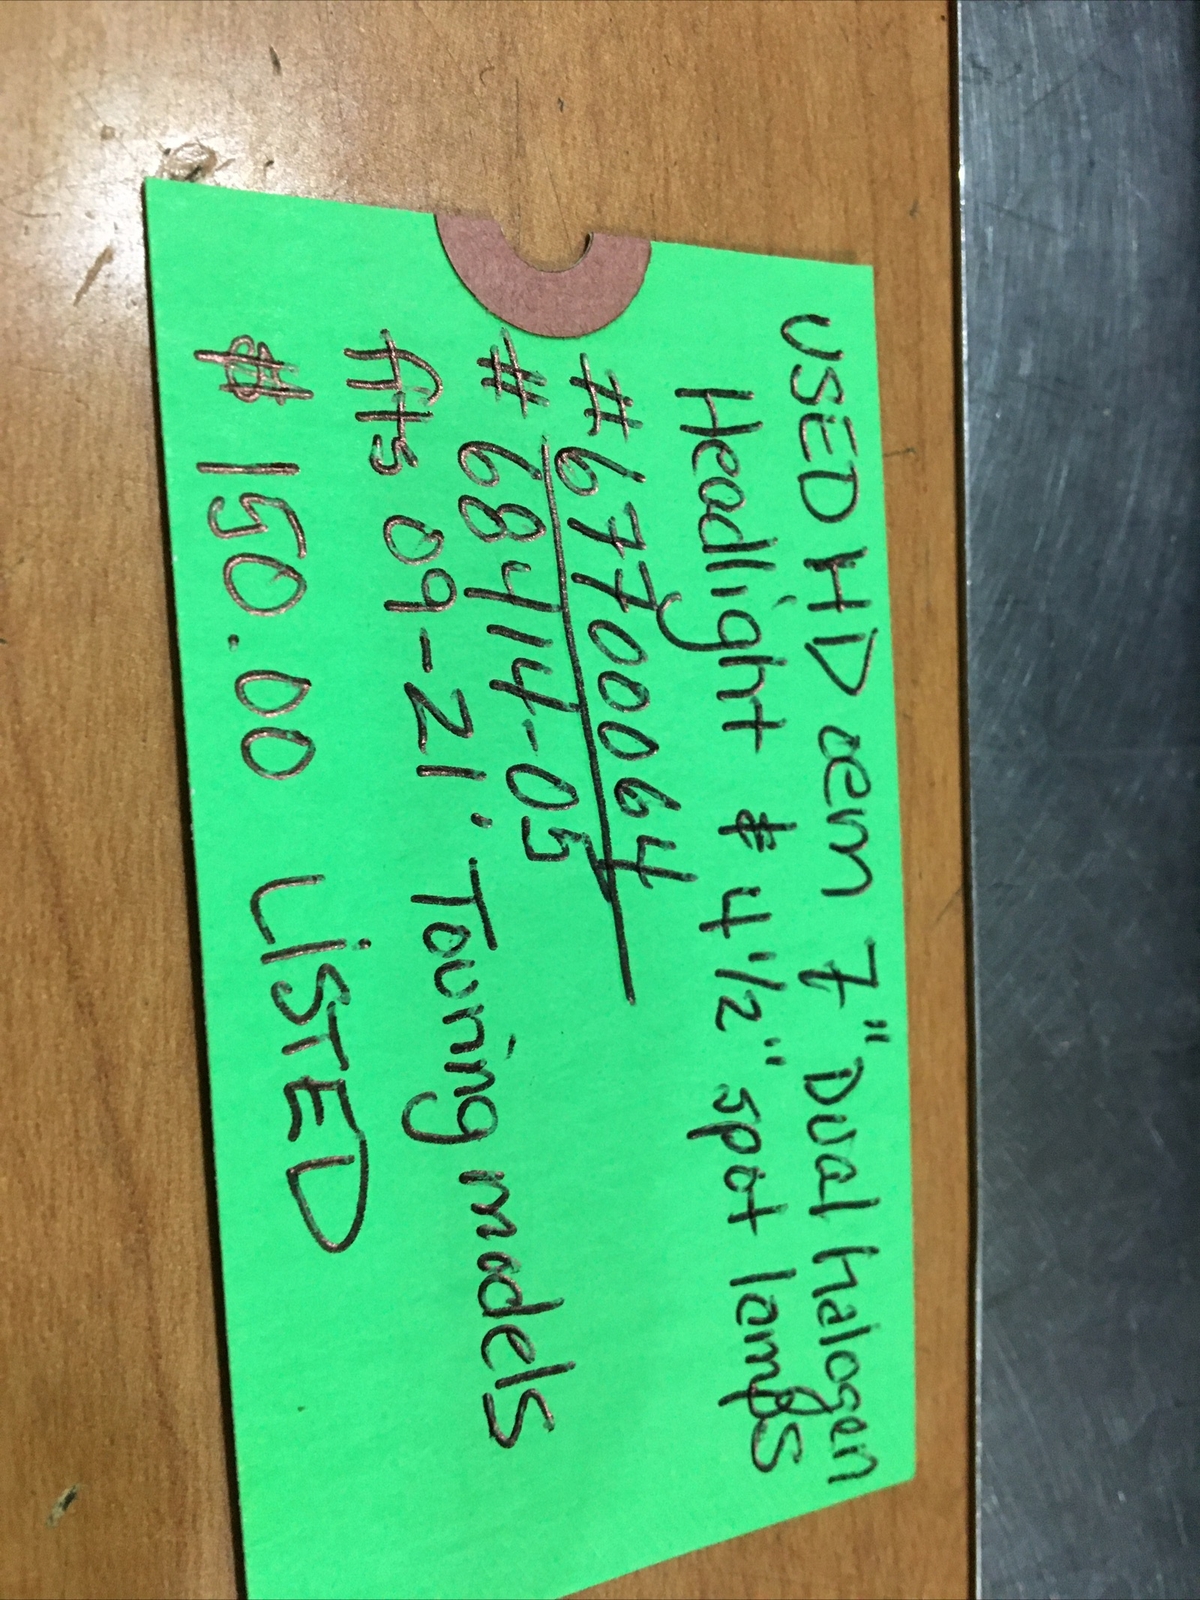 USED HD oem 7" Dual halogen
Headlight & 4 1/2" spot lamps
#67700064
#68414-05
fits 09-21' Touring models
$150.00 LISTED